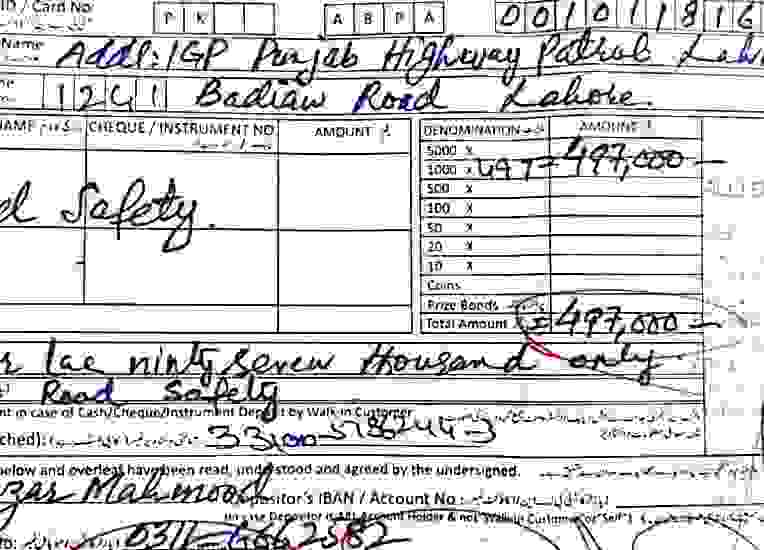 ID / Card No
P K A B P A 0 0 1 0 1 1 8 1 6
Name Addl: IGP Punjab Highway Patrol Lah
1241 Badian Road Lahore.
NAME CHEQUE / INSTRUMENT NO AMOUNT DENOMINATION AMOUNT
5000 x
1000 x 497= 497,000 —
500 x
d Safety. 100 x
50 x
20 x
10 x
Coins
Prize Bonds
Total Amount = 497,000 —
r lac ninty seven thousand only
Road Safety
nt in case of Cash/Cheque/Instrument Deposit by Walk-in Customer
ched): 33100-5786244-3
below and overleaf have been read, understood and agreed by the undersigned.
zar Mahmood Depositor's IBAN / Account No
In case Depositor is ABL Account Holder & not "Walk-in Customer or Self")
0311-4662582